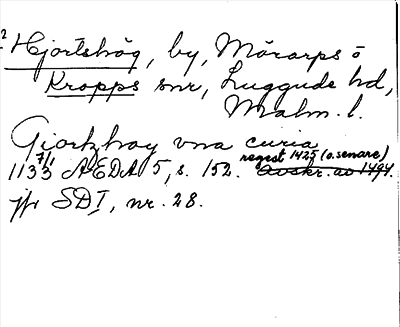 2
Hjortshög, by, Mörarps o
Kropps snr, Luggude hd,
Malm. l.
Giortzhøy vna curia
7/1 regest 1425 (o. senare)
1133 AEDA 5, s. 152. avskr. av 1494.
jfr SD I, nr. 28.